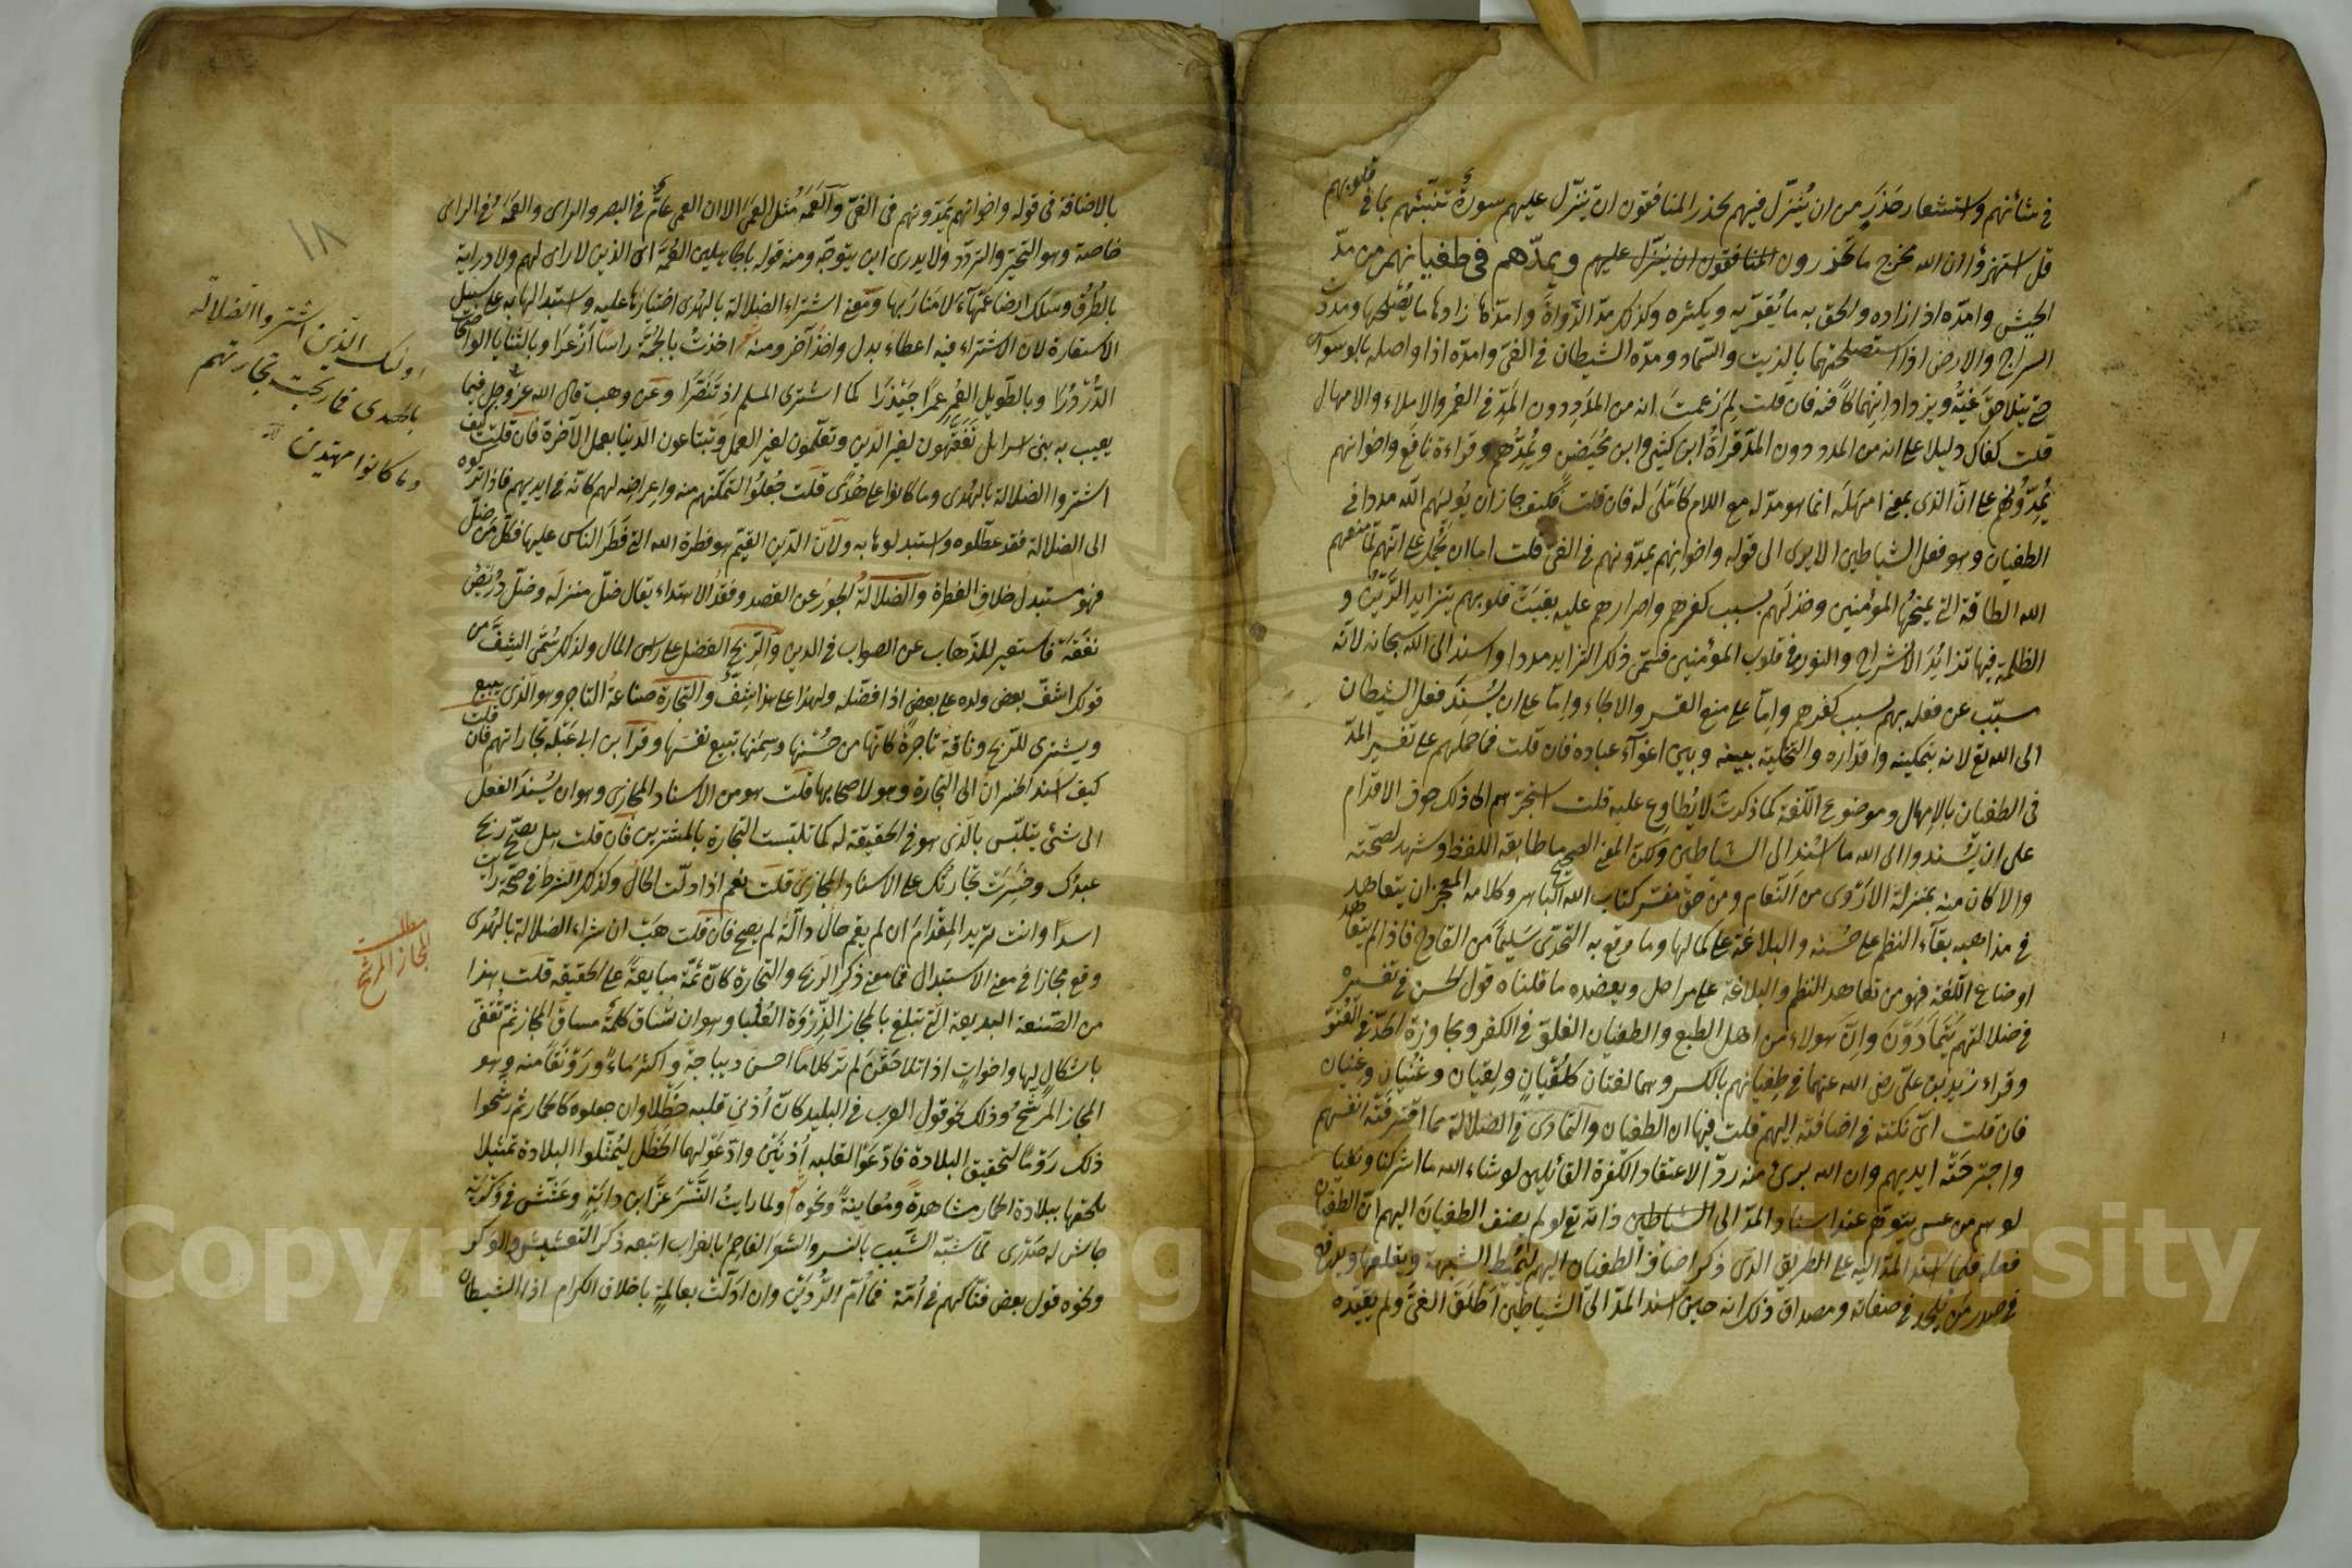 في شأنهم واستشعار حذر من ان ينزل فيهم يحذر المنافقون ان تنزل عليهم سورة تنبئهم بما في قلوبهم
قل استهزؤا ان الله مخرج ما تحذرون المنافقون ان ينزل عليهم ويمدّهم في طغيانهم من مدّ
الجيش وامدّه اذا زاده والحق به ما يُقوّيه ويكثره وكذلك مدّ الدّواة وامدّها زادها ما يُصلحها ومددت
السراج والارض اذا استصلحتهما بالزيت والسّماد ومدّه الشيطان في الغيّ وامدّه اذا واصله بالوسواس
حتى يتلاحق غيّه ويزداد انهماكا فيه فان قلت لم زعمت انه من المدد دون المدّ في العُمر والإملاء والامهال
قلت كفاك دليلا على انه من المدد دون المدّ قراءة ابن كثير وابن مُحَيصن ويُمِدّهم وقراءة نافع واخوانهم
يُمِدّونهم على انّ الذي بمعنى امهله انما هو مدّ له مع اللام كاَمْلَى له فان قلت فكيف جاز ان يُوليهم الله مددا في
الطغيان وهو فعل الشياطين الا يرى الى قوله واخوانهم يمدّونهم في الغيّ قلت اما ان يُحمل على انّهم لمّا منعهم
الله الطافه التي يمنحُها المؤمنين وخذلهم بسبب كفرهم واصرارهم عليه بقيت قلوبهم يتزايد الرّين و
الظلمة فيها تزايُدَ الانشراح والنور في قلوب المؤمنين فسمّى ذلك التزايد مددا واسند الى الله سبحانه لانه
مسبّب عن فعله بهم بسبب كفرهم وامّا على منع القسر والالجاء وامّا على ان يُسنَد فعل الشيطان
الى الله تع لانه بتمكينه واقداره والتخلية بينه وبين اغوآء عباده فان قلت فما حملهم على تفسير المدّ
في الطغيان بالإمهال وموضوع اللّغة كما ذكرتَ لا يُطاوع عليه قلت استجرّهم الى ذلك خوف الاقدام
على ان يُسندوا الى الله ما اسند الى الشياطين ولكن المعنى الصحيح ما طابقه اللفظ وشهد لصحّته
والا كان منه بمنزلة الاَرْوى من النّعام ومن حقّ مفسّر كتاب الله الباهر وكلامه المعجز ان يتعاهد
في مذاهبه بقآء النظم على حُسنه والبلاغة على كمالها وما وقع به التحدّي سَليماً من القادح فاذا لم يتعاهد
اوضاع اللّغة فهو من تعاهد النظم والبلاغة على مراحل ويعضده ما قلناه قول الحسن في تفسيره
في ضلالتهم يتمادَوْنَ وانّ هولاء من اهل الطبع والطغيان الغلوّ في الكفر ومجاوزة الحدّ في العُتوّ
وقراء زيد بن عليّ رضى الله عنهما في طِغيانهم بالكسر وهما لغتان كلُقيان ولِقيان وغُنيان وغِنيان
فان قلت ايّ نكتة في اضافته اليهم قلت فيها ان الطغيان والتمادى في الضلالة مما اقترفته انفسهم
واجترحَتْه ايديهم وان الله برىء منه ردّا لاعتقاد الكفرة القائلين لو شاء الله ما اشركنا ونفيا
لوهم من عسى يتوهّم عند اسناد المدّ الى الشياطين ذاته تع لو لم يضف الطغيان اليهم انّ الطغيان
فعله فلمّا اسند المدّ اليه على الطريق الذى ذكر اضاف الطغيان اليهم ليُميط الشبهة ويقلعها ويدفع
في صدر من يُلحد في صفاته ومصداق ذلك انه حين اسند المدّ الى الشياطين اَطلق الغيّ ولم يقيّده
بالاضافة في قوله واخوانهم يمدّونهم في الغيّ والعَمَهُ مثل العَمى الا ان العمى عامّ في البصر والراى والعَمَهُ في الراى
خاصة وهو التحيّر والتردّد ولا يدرى اين يتوجّه ومنه قوله بالجاهلين العُمّه اى الذين لا راى لهم ولا دراية
بالطُرُق وسلك ارضا عَمْهآء لا منار بها ومعنى اشتراء الضلالة بالهُدى اختيارها عليه واستبدالها به على سبيل
الاستعارة لان الاشتراء فيه اعطاء بدل واخذ آخر ومنه اخذتُ بالجُمّة راسا اَزعرا وبالثنايا الواضحات
الدُّرْدُرا وبالطّويل العُمر عُمرًا جَيْذَرا كما اشترى المسلم اذ تنصّرا وعن وهب قال الله عزّ وجل فيما
يعيب به بنى اسرايل تفقّهون لغير الدّين وتعلّمون لغير العمل وتبتاعون الدنيا بعمل الآخرة فان قلت كيف
اشتروا الضلالة بالهُدى وما كانوا على هُدًى قلت جُعلوا لتمكّنهم منه واعراضه لهم كانّه في ايديهم فاذا تركوه
الى الضلالة فقد عطّلوه واستبدلوها به ولانّ الدّين القيّم هو فطرة الله التي فَطَر الناس عليها فكلّ من ضلّ
فهو مستبدلٌ خلاف الفطرة والضلالةُ الجورُ عن القصد وفَقْدُ الاهتداء يقال ضلّ منزله وضلّ دُرَيصٌ
نفقَه فاستعير للذهاب عن الصواب في الدين والرّبحُ الفضل على راس المال ولذلك سُمّى الشِفّ من
قولك اشفّ بعض ولده على بعض اذا فضّله ولهذا على هذا شِفّ والتجارة صناعة التاجر وهو الذى يبيع
ويشترى للرّبح وناقة تاجرة كانها من حُسنها وسِمَنها تبيع نفسَها وقرأ ابن ابى عَبْلة تجاراتهم فان قلت
كيف اسند الخسران الى التجارة وهو لاصحابها قلت هو من الاسناد المجازى وهو ان يُسنَد الفعل
الى شئ يتلبّس بالّذى هو في الحقيقة له كما تلبّست التجارة بالمشترين فان قلت هل يصحّ ربح
عبدُك وخسِرَت تجارتُك على الاسناد المجازى قلت نعم اذا دلّت الحال وكذلك الشرط في صحّة رايت
اسدا وانت تريد المِقدامَ ان لم يقم حالٌ دالّة لم يصح فان قلت هَبْ ان شراء الضلالة بالهُدى
وقع مجازا في معنى الاستبدال فما معنى ذكر الربح والتجارة كانّ ثَمّة مبايعةً على الحقيقه قلت هذا
من الصّنعة البديعة التي تبلغ بالمجاز الذِّروَة العُليا وهو ان تُساق كلمةٌ مساقَ المجاز ثم تُقفّى
باشكالٍ لها واخواتٍ اذا تلاحقْنَ لم تر كلاما احسن ديباجةً واكثر ماءً ورَوْنَقًا منه وهو
المجاز المُرشّح وذلك نحو قول العرب في البليد كانّ اُذنَى قلبه خَطْلاوان جعلوه كالحمار ثم رشّحوا
ذلك رَوْمًا لتحقيق البلادة فادّعَوْا لقلبه اُذنَيْن وادّعَوْا لهما الخَطَل ليُمثّلوا البلادة تمثيلا
يلحقها ببلادة الحمار مشاهدةً ومُعاينةً ونحوه ولما رايتُ النَّسْرَ عزَّ ابن دايةٍ وعَشّش في وَكْرَيْه
جاش له صَدْرى لمّا شبّه الشّيب بالنسر والشعرَ الفاحِم بالغراب اتبعه ذكر التعشيش والوكر
ونحوه قول بعض فتّاكهم في اُمّه فما اُمّ الرُّدَيْن وان ادَلّت بعالمةٍ باخلاق الكرام اذا الشيطان
١٨
اولئك الّذين اشتروا الضلالة
بالهدى فما ربحت تجارتهم
وما كانوا مهتدين
مطلب
المجاز المرشح
Copyright © King Saud University